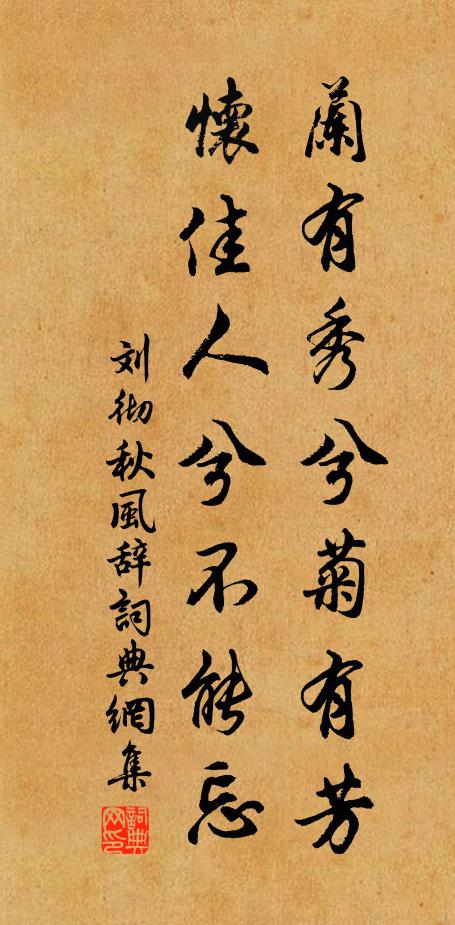 蘭有秀兮菊有芳
懷佳人兮不能忘
刘彻秋風辞詞典網集
詞典网印